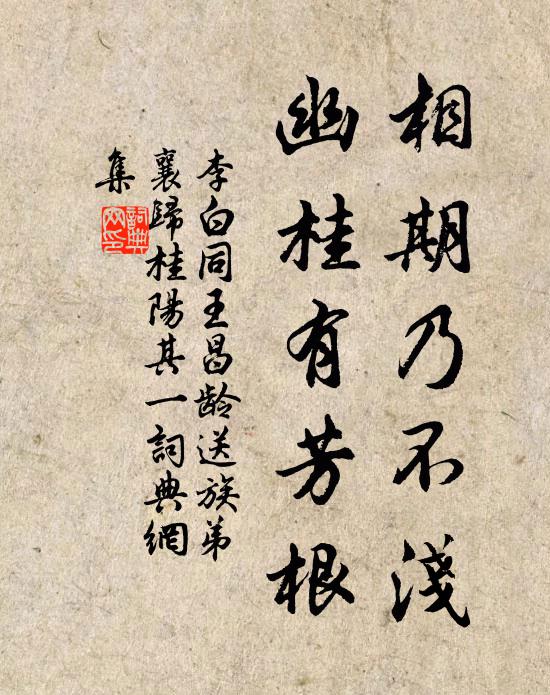 相期乃不淺
幽桂有芳根
李白同王昌龄送族弟
襄歸桂陽其一詞典網
集
詞典網印